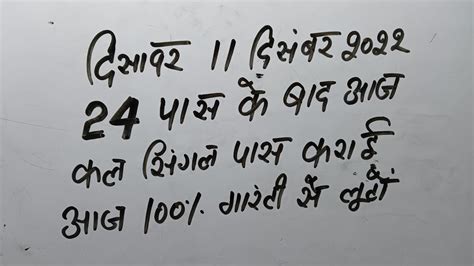 दिसावर 11 दिसंबर 2022
24 पास के बाद आज
कल सिंगल पास कराई
आज 100% गारंती सै लूटों